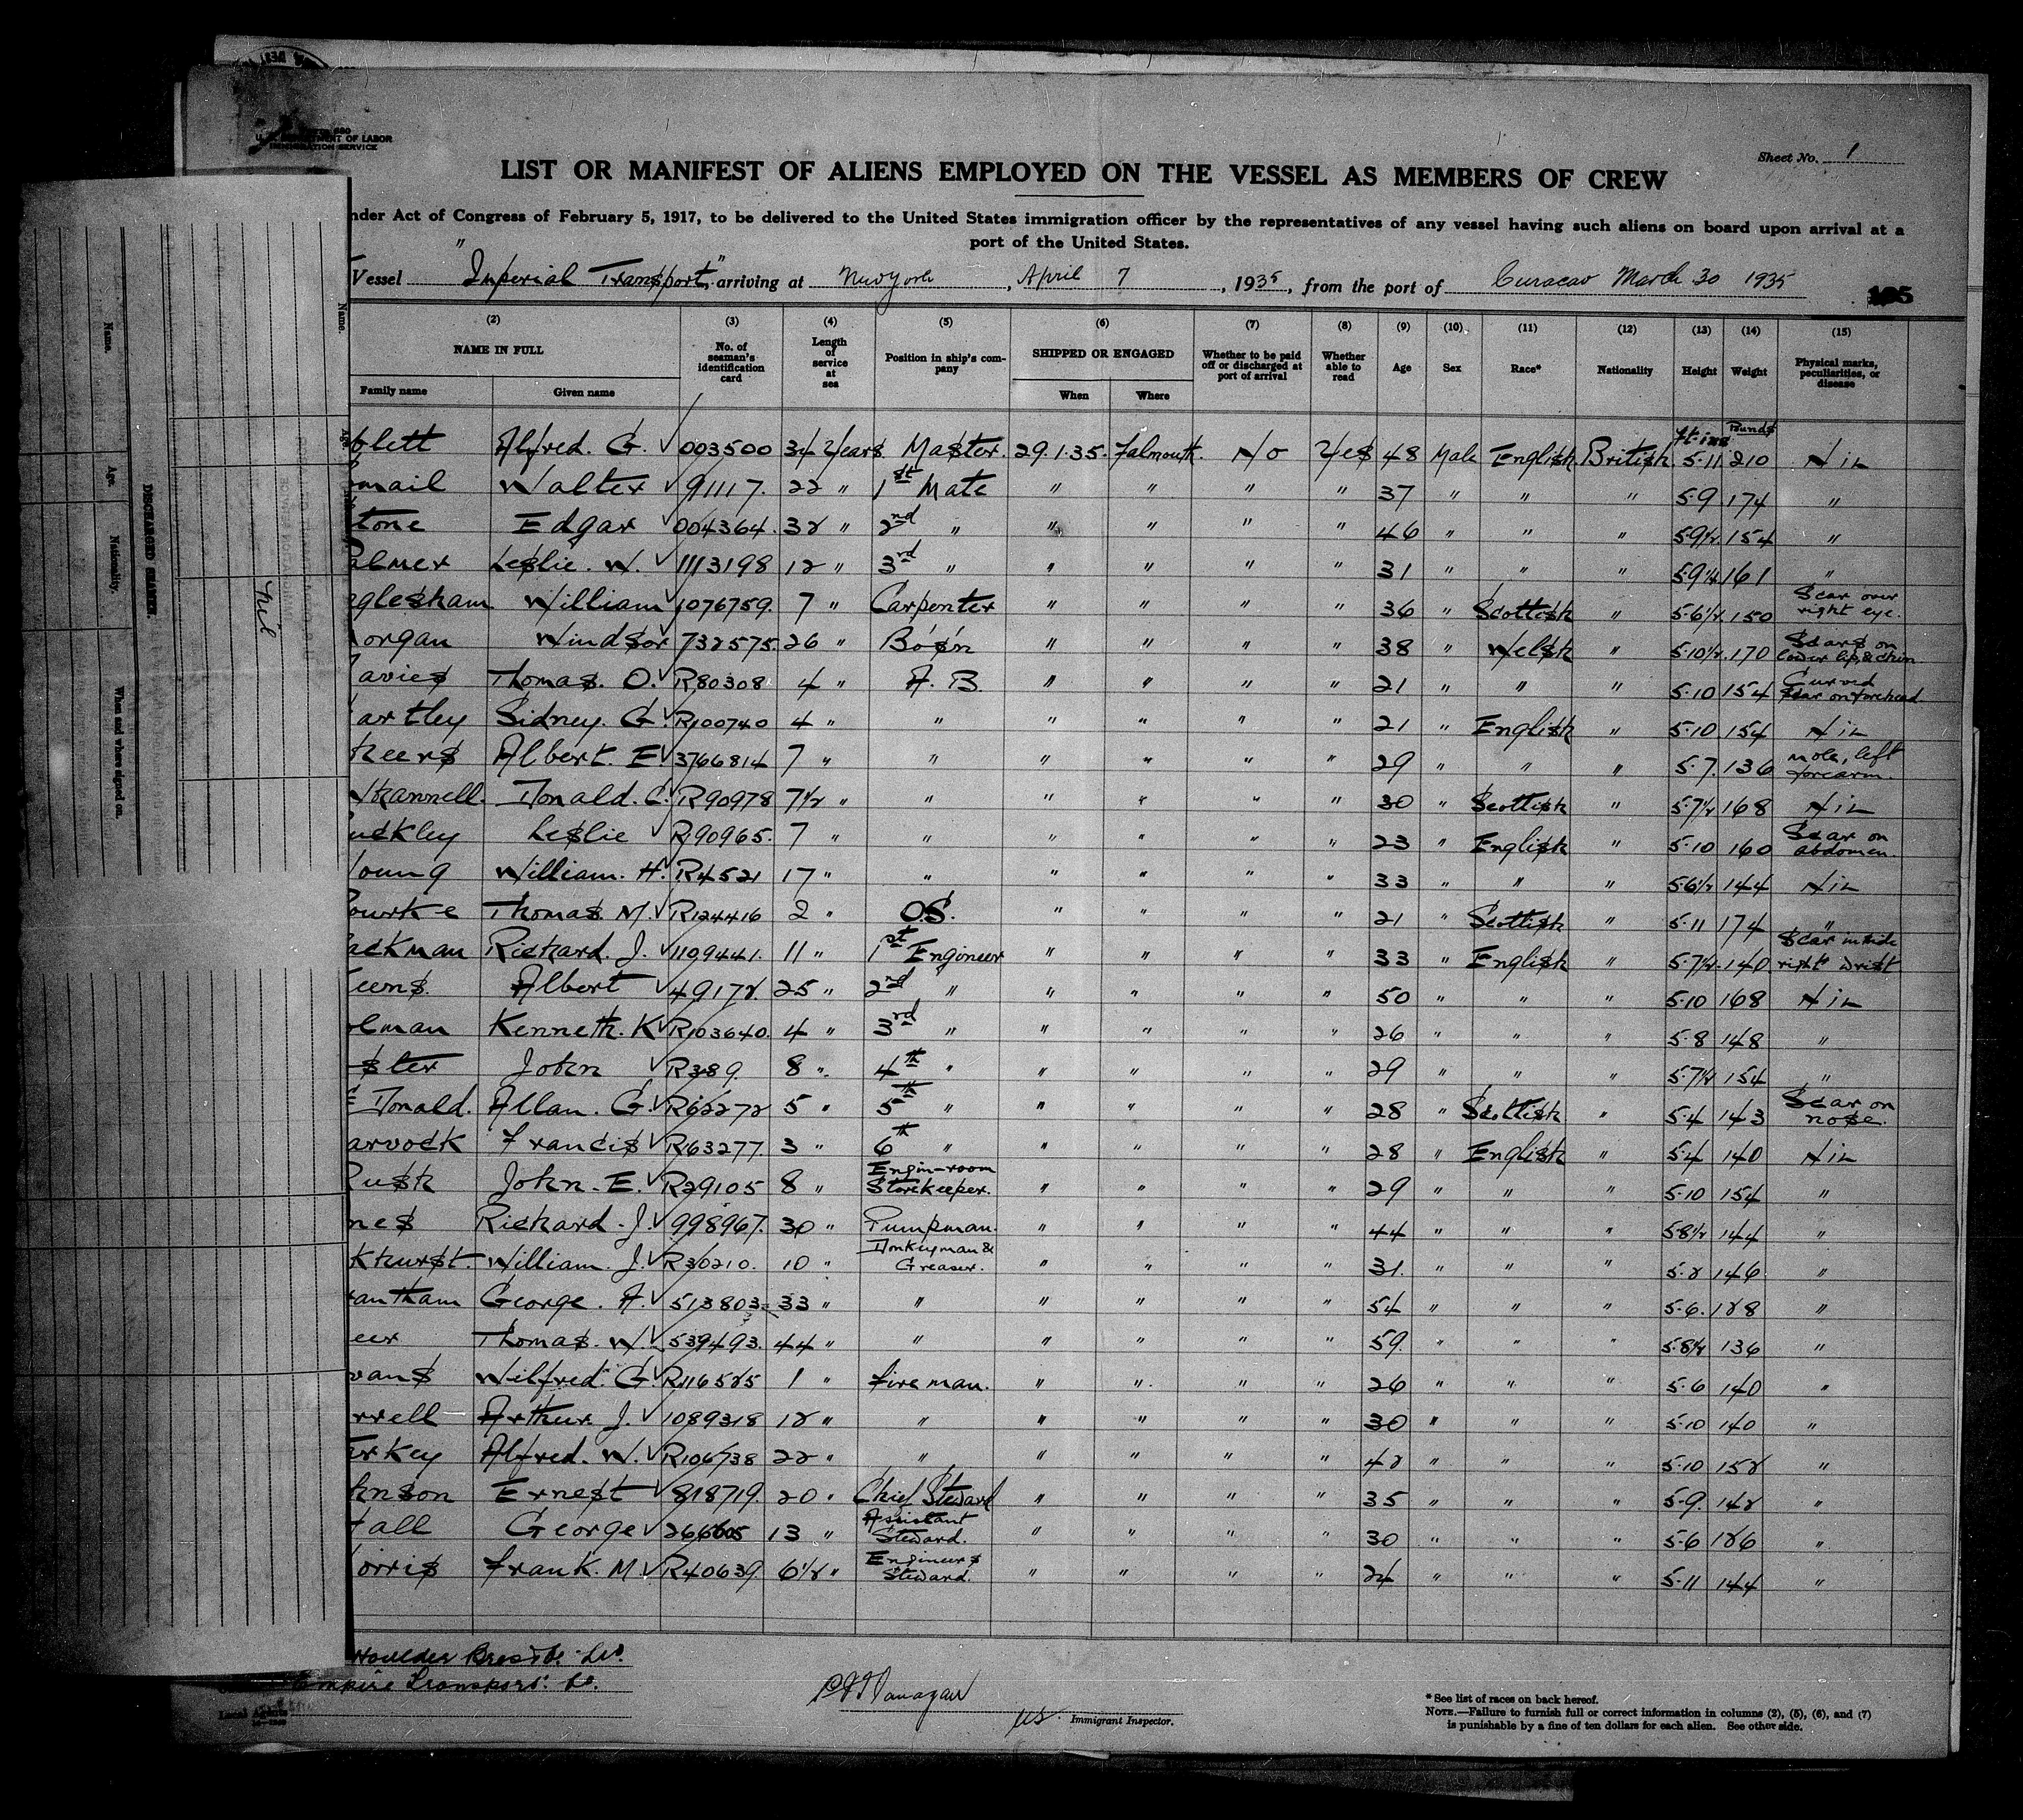 U. S. DEPARTMENT OF LABOR
IMMIGRATION SERVICE
Sheet No. 1
LIST OR MANIFEST OF ALIENS EMPLOYED ON THE VESSEL AS MEMBERS OF CREW
nder Act of Congress of February 5, 1917, to be delivered to the United States immigration officer by the representatives of any vessel having such aliens on board upon arrival at a
port of the United States.
Vessel "Imperial Transport", arriving at New York, April 7, 1935, from the port of Curacao March 30 1935
195
(2) (3) (4) (5) (6) (7) (8) (9) (10) (11) (12) (13) (14) (15)
NAME IN FULL No. of seaman's identification card Length of service at sea Position in ship's company SHIPPED OR ENGAGED Whether to be paid off or discharged at port of arrival Whether able to read Age Sex Race* Nationality Height Weight Physical marks, peculiarities, or disease
Family name Given name When Where
ft. ins Pounds
blett Alfred. G. 003500 34 Years Master. 29.1.35. Falmouth. No Yes 48 Male English British 5.11 210 Nil
mail Walter 91117. 22 " 1st Mate " " " " 37 " " " 5.9 174 "
tone Edgar 004364. 32 " 2nd " " " " " 46 " " " 5.9½ 154 "
almer Leslie. W. 1113198 12 " 3rd " " " " " 31 " " " 5.9¼ 161 "
glesham William 1076759. 7 " Carpenter " " " " 36 " Scottish " 5.6½ 150 Scar over right eye.
organ Windsor 732575. 26 " Bo's'n " " " " 38 " Welsh " 5.10½ 170 Scars on lower lip & chin
avies Thomas. O. R80308 4 " A. B. " " " " 21 " " " 5.10 154 Curved scar on forehead.
artley Sidney. G. R100740 4 " " " " " " 21 " English " 5.10 154 Nil
keers Albert. E 3766814 7 " " " " " " 29 " " " 5.7. 136 mole, left forearm.
hannell. Donald. C. R90978 7½ " " " " " " 30 " Scottish " 5.7½ 168 Nil
uckley Leslie R90965. 7 " " " " " " 23 " English " 5.10 160 Scar on abdomen.
oung William. H. R4521 17 " " " " " " 33 " " " 5.6½ 144 Nil
ourke Thomas. M. R124416 2 " O.S. " " " " 21 " Scottish " 5.11 174 "
ackman Richard. J. 1109441. 11 " 1st Engineer " " " " 33 " English " 5.7½ 140 Scar inside right wrist
eens. Albert 49172. 25 " 2nd " " " " " 50 " " " 5.10 168 Nil
olman Kenneth. K R103640. 4 " 3rd " " " " " 26 " " " 5.8 148 "
ster John R389. 8 " 4th " " " " " 29 " " " 5.7½ 154 "
Donald. Allan. G. R62272 5 " 5th " " " " " 28 " Scottish " 5.4 143 Scar on nose.
arvock Francis R63277. 3 " 6th " " " " " 28 " English " 5.4 140 Nil
ush John. E. R29105 8 " Engin-room Storekeeper. " " " " 29 " " " 5.10 154 "
nes Richard. J. 998967. 30 " Pumpman. " " " " 44 " " " 5.8½ 144 "
khurst. William. J. R30210. 10 " Donkeyman & Greaser. " " " " 31. " " " 5.2 146 "
antham George. A. 513803 33 " " " " " " 54 " " " 5.6. 128 "
eer Thomas. W. 539493. 44 " " " " " " 59. " " " 5.8½ 136 "
vans Wilfred. G. R116525 1 " Fireman. " " " " 26 " " " 5.6 140 "
rrell Arthur. J. 1089318 12 " " " " " " 30 " " " 5.10 140 "
rkey Alfred. W. R106738 22 " " " " " " 42 " " " 5.10 152 "
hnson Ernest 818719. 20 " Chief Steward " " " " 35 " " " 5.9. 142 "
all George 266605 13 " Assistant Steward. " " " " 30 " " " 5.6 126 "
orris Frank. M R40639. 6½ " Engineers Steward. " " " " 24 " " " 5.11 144 "
Houlder Bros
Empire Transport. Co.
Local Agents
Immigrant Inspector.
* See list of races on back hereof.
NOTE.—Failure to furnish full or correct information in columns (2), (5), (6), and (7)
is punishable by a fine of ten dollars for each alien. See other side.
Name.
Age.
Nationality.
When and where signed on.
DISCHARGED SEAMEN.
Nil
Name.
Age.